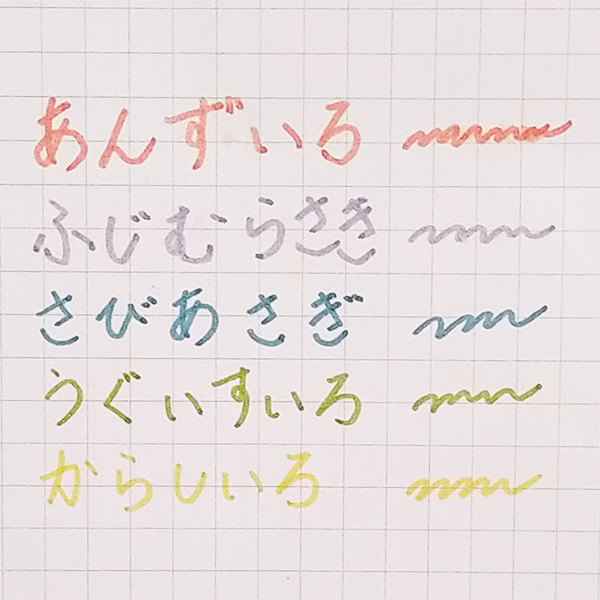 あんずいろ
ふじむらさき
さびあさぎ
うぐいすいろ
からしいろ